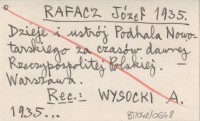 RAFACZ Józef 1935.
Dzieje i ustrój Podhala Nowo-
tarskiego za czasów dawnej
Rzeczypospolitej Polskiej.
Warszawa.
Rec.: WYSOCKI A.
1935...